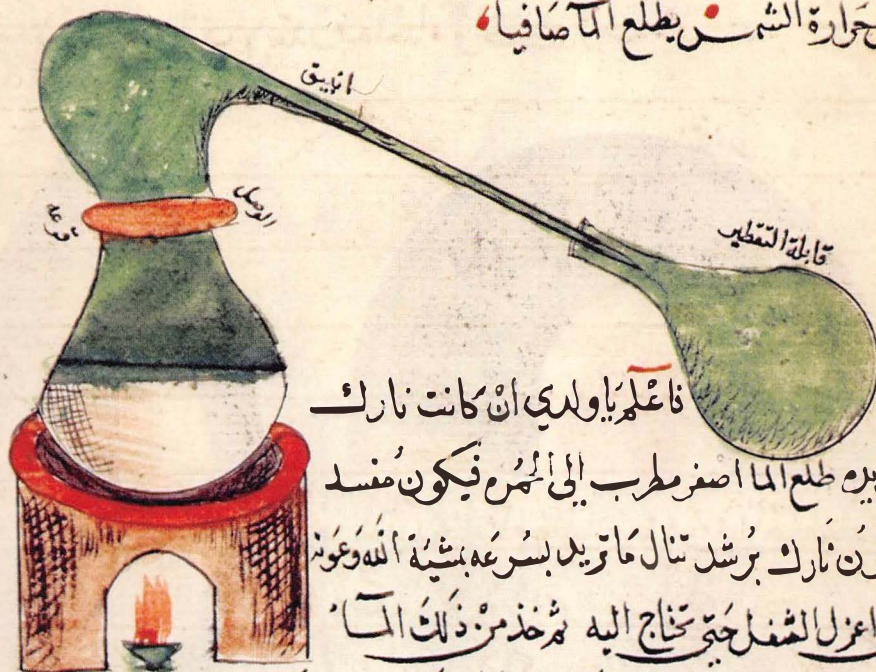 حرارة الشمس يطلع الما صافيا
انبيق
الوصل
قرعه
قابلة التقطير
فاعلم يا ولدي ان كانت نارك
طلع الما اصفر مطرب الى الحمره فيكون مفسد
نارك برشد تنال ما تريد بسرعه بمشية الله وعونه
اعزل الثفل حتى تحتاج اليه ثم خذ من ذلك الما